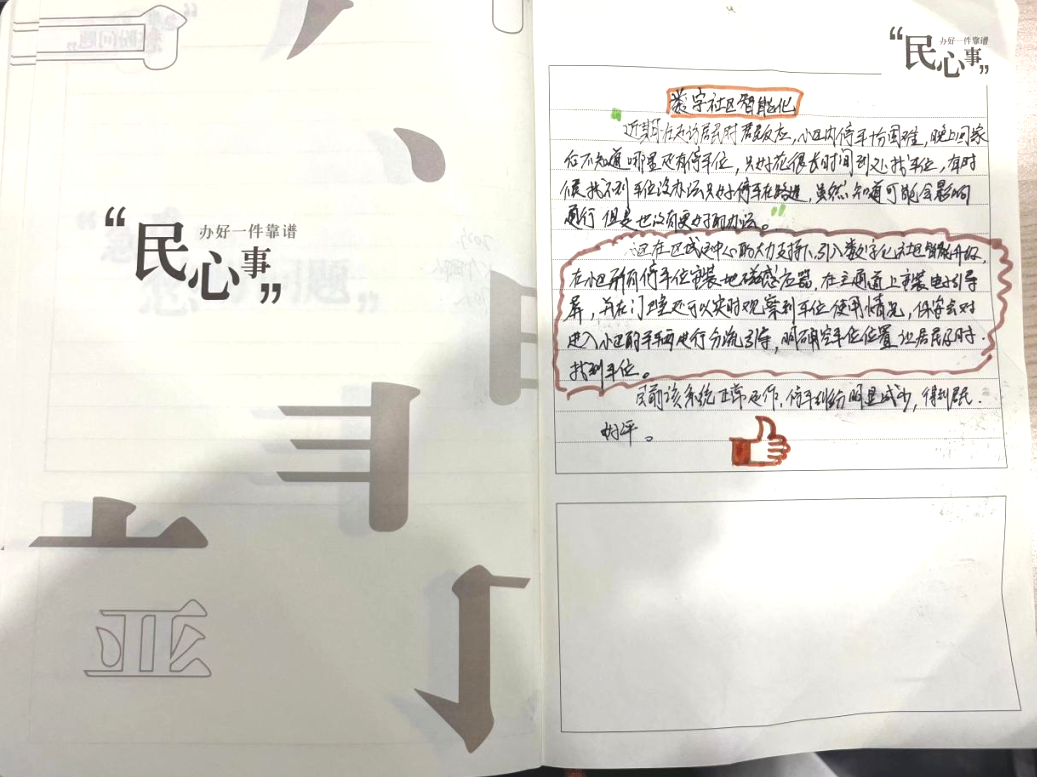 “民心事”
办好一件靠谱
“民心事”
办好一件靠谱
数字社区智能化
近期在走访居民时居民反应，小区内停车十分困难，晚上回家
后不知道哪里还有停车位，只好花很长时间到处找车位，有时
候找不到车位没办法只好停车在路边，虽然知道可能会影响
通行但是也没有更好的办法。
现在区城运中心的大力支持下，引入数字化社区智能
在小区所有停车位安装地磁感应器，在主通道上安装电子引导
屏，并在门卫室还可以实时观察到车位使用情况，保安会对
进入小区的车辆进行分流引导，明确空车位位置让居民及时
找到车位。
目前该系统正常运作，停车纠纷明显减少，得到居民
好评。